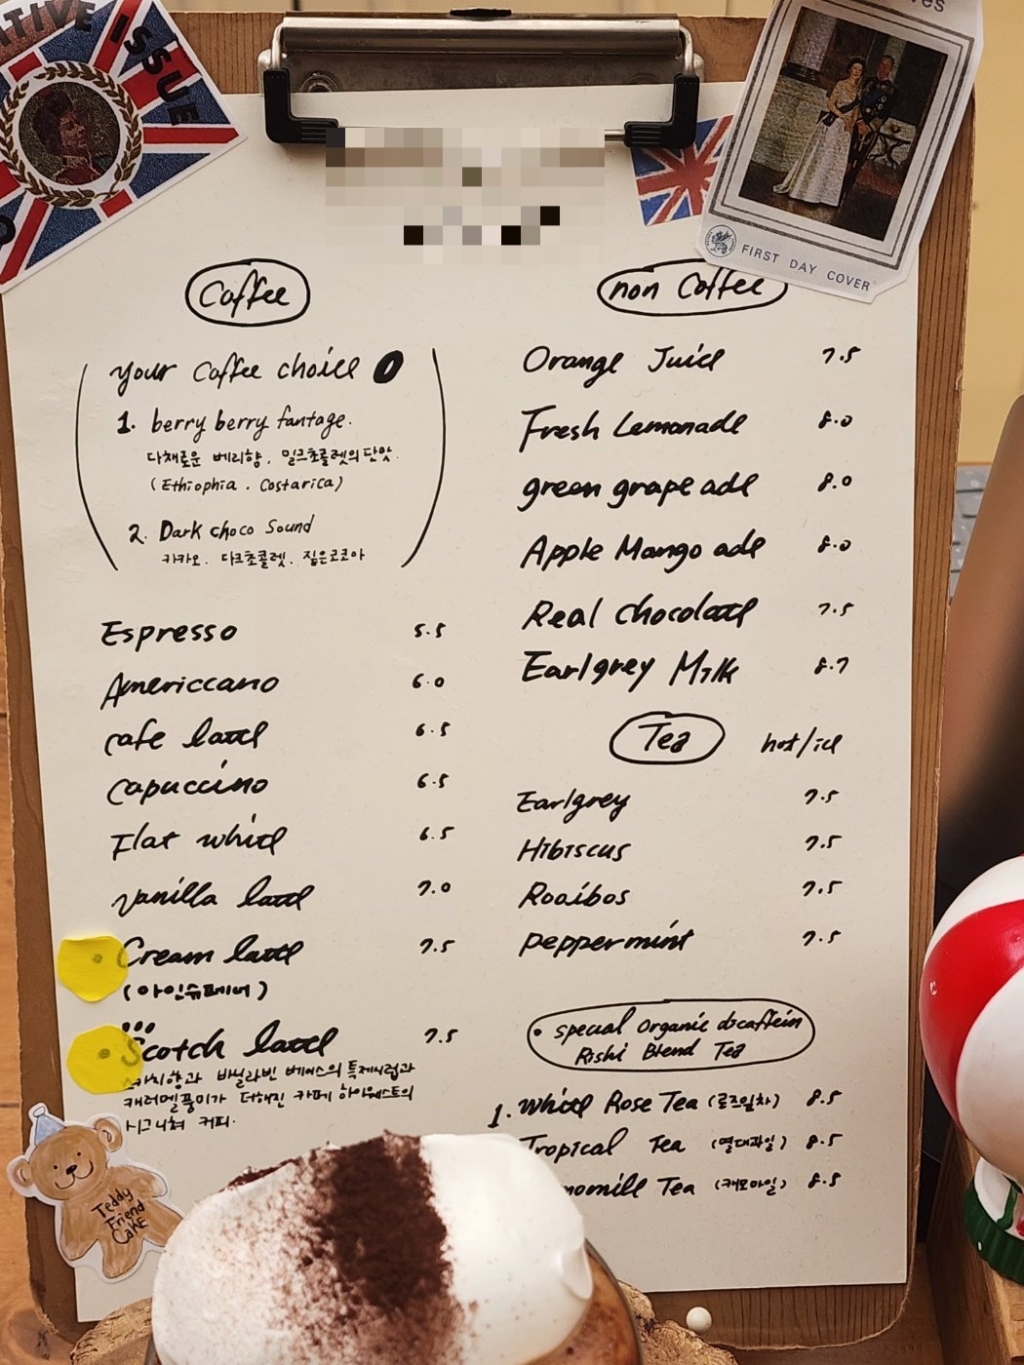 ATIVE ISSUE
ves
FIRST DAY COVER
Coffee
your coffee choice
1. berry berry fantage.
다채로운 베리향, 밀크초콜렛의 단맛.
(Ethiophia. Costarica)
2. Dark choco Sound
카카오. 다크초콜렛. 짙은코코아
Espresso 5.5
Americcano 6.0
cafe latte 6.5
capuccino 6.5
Flat white 6.5
vanilla latte 7.0
Cream latte 7.5
(아인슈페너)
Scotch latte 7.5
스카치향과 바닐라빈 베이스의 특제시럽과
캐러멜풍미가 더해진 카페 하이웨스트의
시그니쳐 커피.
Teddy
Friend
CaKE
non Coffee
Orange Juice 7.5
Fresh Lemonade 8.0
green grape ade 8.0
Apple Mango ade 8.0
Real chocolate 7.5
Earlgrey Milk 8.7
Tea hot/ice
Earlgrey 7.5
Hibiscus 7.5
Rooibos 7.5
peppermint 7.5
• special organic dicaffein
Rishi Blend Tea
1. white Rose Tea (로즈잎차) 8.5
Tropical Tea (열대과일) 8.5
momill Tea (캐모마일) 8.5